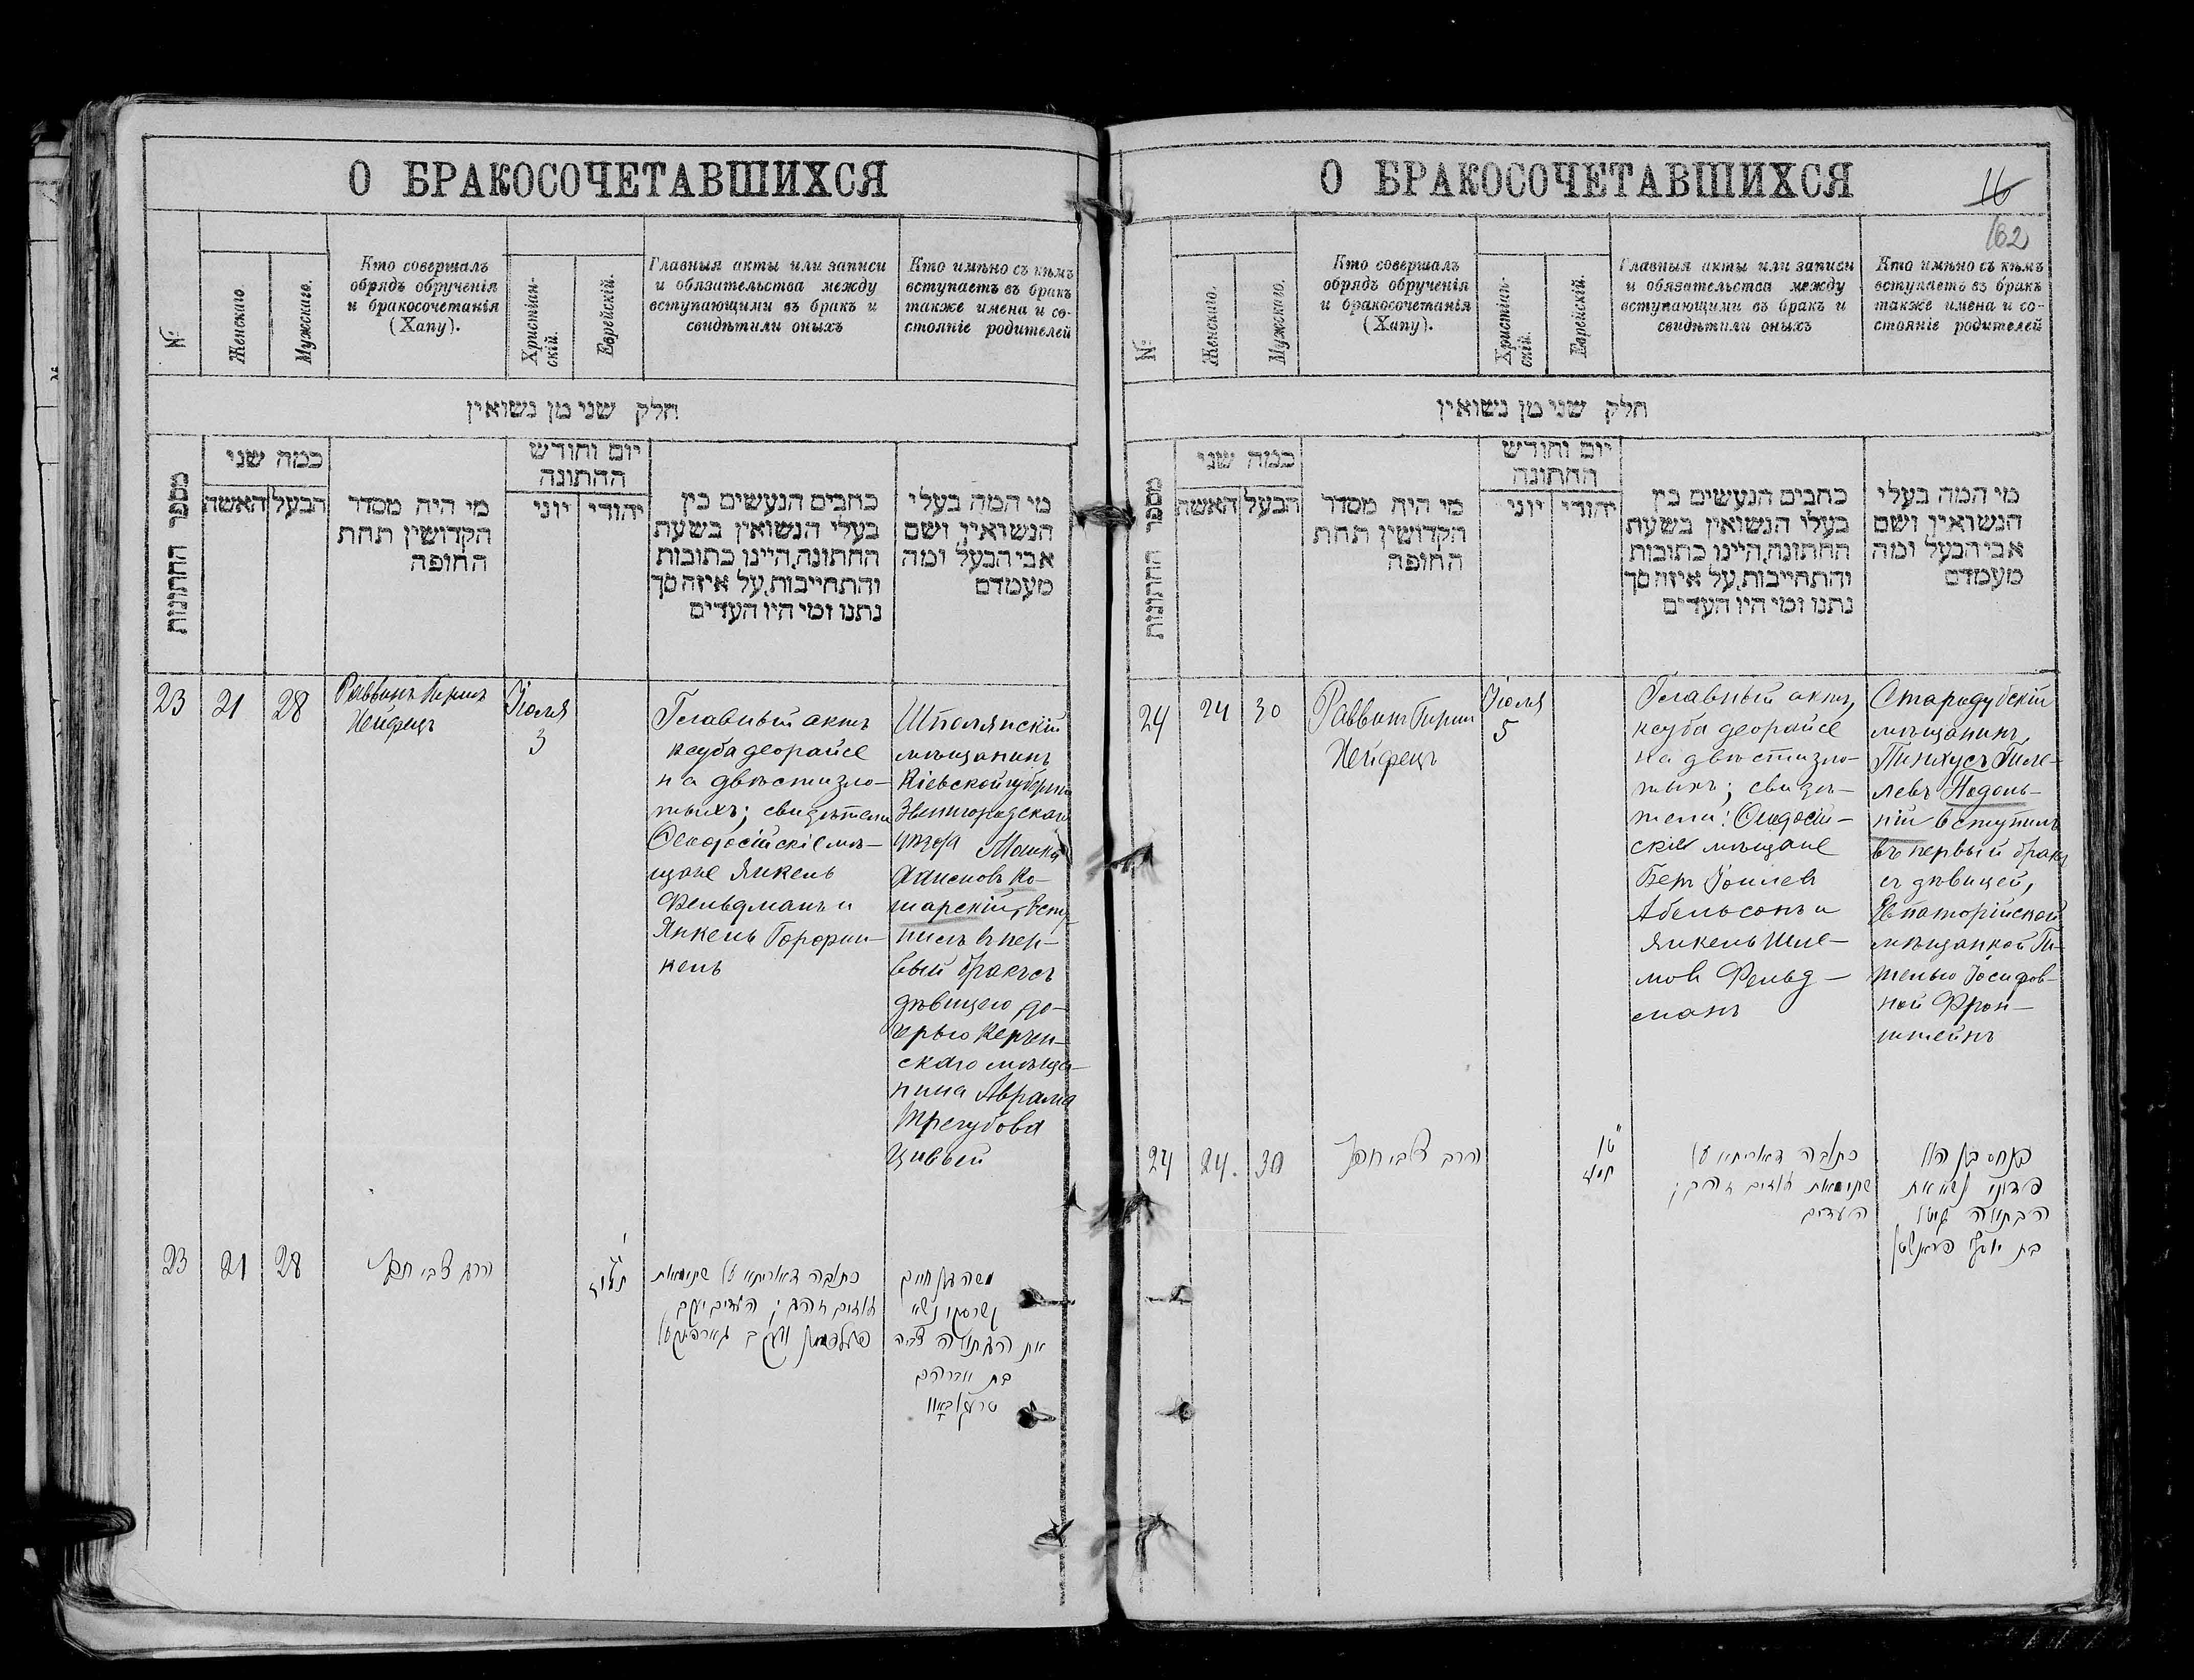 О БРАКОСОЧЕТАВШИХСЯ
№
Женскаго.
Мужскаго.
Кто совершалъ
обрядъ обрученія
и бракосочетанія
(Хапу).
Христіан-
скій.
Еврейскій.
Главныя акты или записи
и обязательства между
вступающими въ бракъ и
свидѣтили оныхъ
Кто имѣно съ кѣмъ
вступаетъ въ бракъ
также имена и со-
стояніе родителей
חלק שני מן נשואין
מספר החתונות
כמה שני
האשה
הבעל
מי היה מסדר
הקדושין תחת
החופה
יום וחודש
החתונה
יוני
יהודי
כתבים הנעשים בין
בעלי הנשואין בשעת
החתונה, היינו כתובות
והתחייבות, על איזה סך
נתנו ומי היו העדים
מי המה בעלי
הנשואין ושם
אבי הבעל ומה
מעמדם
23
21
28
Раввинъ Гирш
Хейфецъ
Іюля
3
Главный актъ
ксуба деорайсе
на двѣсти зло-
тыхъ; свидѣтели
Ѳеодосійскіе мѣ-
щане Янкель
Фельдманъ и
Янкель Горфин-
кель
Шполянскій
мѣщанинъ
Кіевской губерніи
Звенигородскаго
уѣзда Мошка
Ко-
шарскій, всту-
пилъ в пер-
вый бракъ съ
дѣвицею до-
черью Керчен-
скаго мѣща-
нина Аврама
Трегубова
Цивьей
23
21
28
הרב צבי חפץ
י"ג
תמוז
כתובה דאורייתא על שתי מאות
זהובים; העדים יעקב
פעלדמאן ויעקב גארפינקעל
משה בן חיים
קשרסקי נשא
את הבתולה צביה
בת אברהם
טרעגובאוו
О БРАКОСОЧЕТАВШИХСЯ
16
62
№
Женскаго.
Мужскаго.
Кто совершалъ
обрядъ обрученія
и бракосочетанія
(Хапу).
Христіан-
скій.
Еврейскій.
Главныя акты или записи
и обязательства между
вступающими въ бракъ и
свидѣтили оныхъ
Кто имѣно съ кѣмъ
вступаетъ въ бракъ
также имена и со-
стояніе родителей
חלק שני מן נשואין
מספר החתונות
כמה שני
האשה
הבעל
מי היה מסדר
הקדושין תחת
החופה
יום וחודש
החתונה
יוני
יהודי
כתבים הנעשים בין
בעלי הנשואין בשעת
החתונה, היינו כתובות
והתחייבות, על איזה סך
נתנו ומי היו העדים
מי המה בעלי
הנשואין ושם
אבי הבעל ומה
מעמדם
24
24
30
Раввинъ Гирш
Хейфецъ
Іюля
5
Главный актъ,
ксуба деорайсе
на двѣсти зло-
тыхъ; свидѣ-
тели: Ѳеодосій-
скіе мѣщане
Беръ Іоилев
Абельсонъ и
Янкель Шле-
мов Фельд-
манъ
Стародубскій
мѣщанинъ,
Пинхусъ Гиле-
левъ Подоль-
ній вступилъ
въ первый бракъ
съ дѣвицей,
Евпаторійской
мѣщанкой Ги-
телью Іосифов-
ной Фрон-
штейнъ
24
24.
30
הרב צבי חפץ
ט"ו
תמוז
כתובה דאורייתא על
שתי מאות זהובים;
העדים
פנחס בן הלל
פדולני נשא את
הבתולה גיטל
בת יוסף פראנשטיין